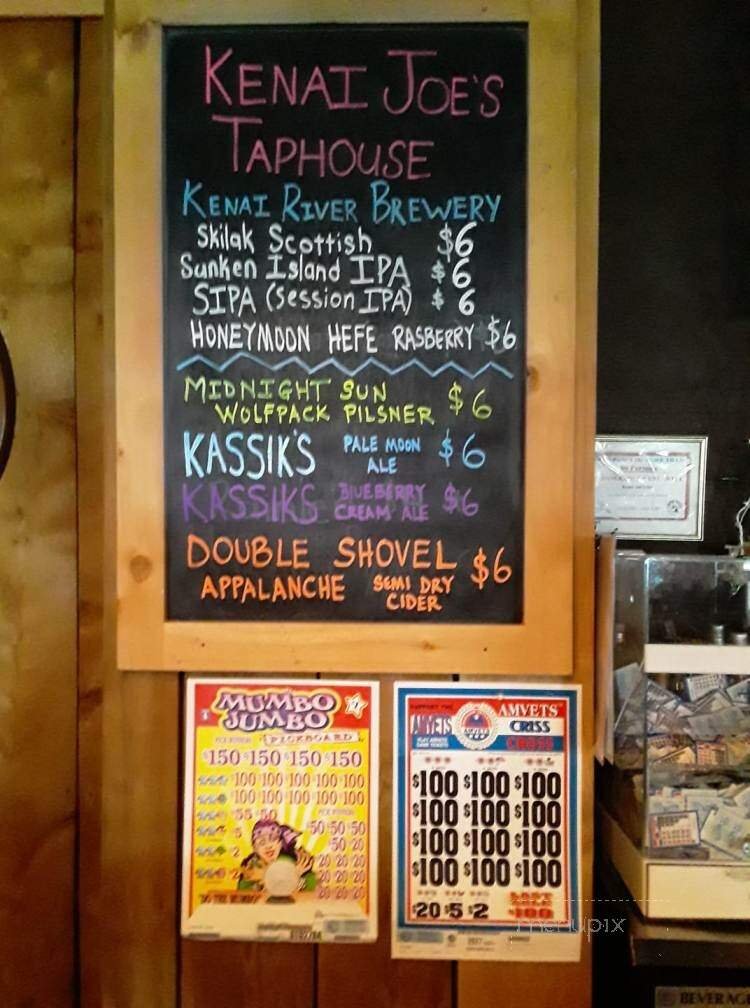 KENAI JOE'S
TAPHOUSE
KENAI RIVER BREWERY
Skilak Scottish $6
Sunken Island IPA $6
SIPA (Session IPA) $6
HONEYMOON HEFE RASBERRY $6
MIDNIGHT SUN
WOLFPACK PILSNER $6
KASSIK'S PALE MOON ALE $6
KASSIKS BLUEBERRY CREAM ALE $6
DOUBLE SHOVEL $6
APPALANCHE SEMI DRY CIDER
MUMBO
JUMBO
PICKBOARD
$150 $150 $150 $150
100 100 100 100 100
100 100 100 100 100
55 50
50 50 50
50 20
20 20 20
20 20 20
20 20 20
SUPPORT THE
AMVETS
AMVETS
CRISS
CROSS
$100 $100 $100
$100 $100 $100
$100 $100 $100
$100 $100 $100
LAST
$20 $5 $2 $100
menupix
BEVERAG